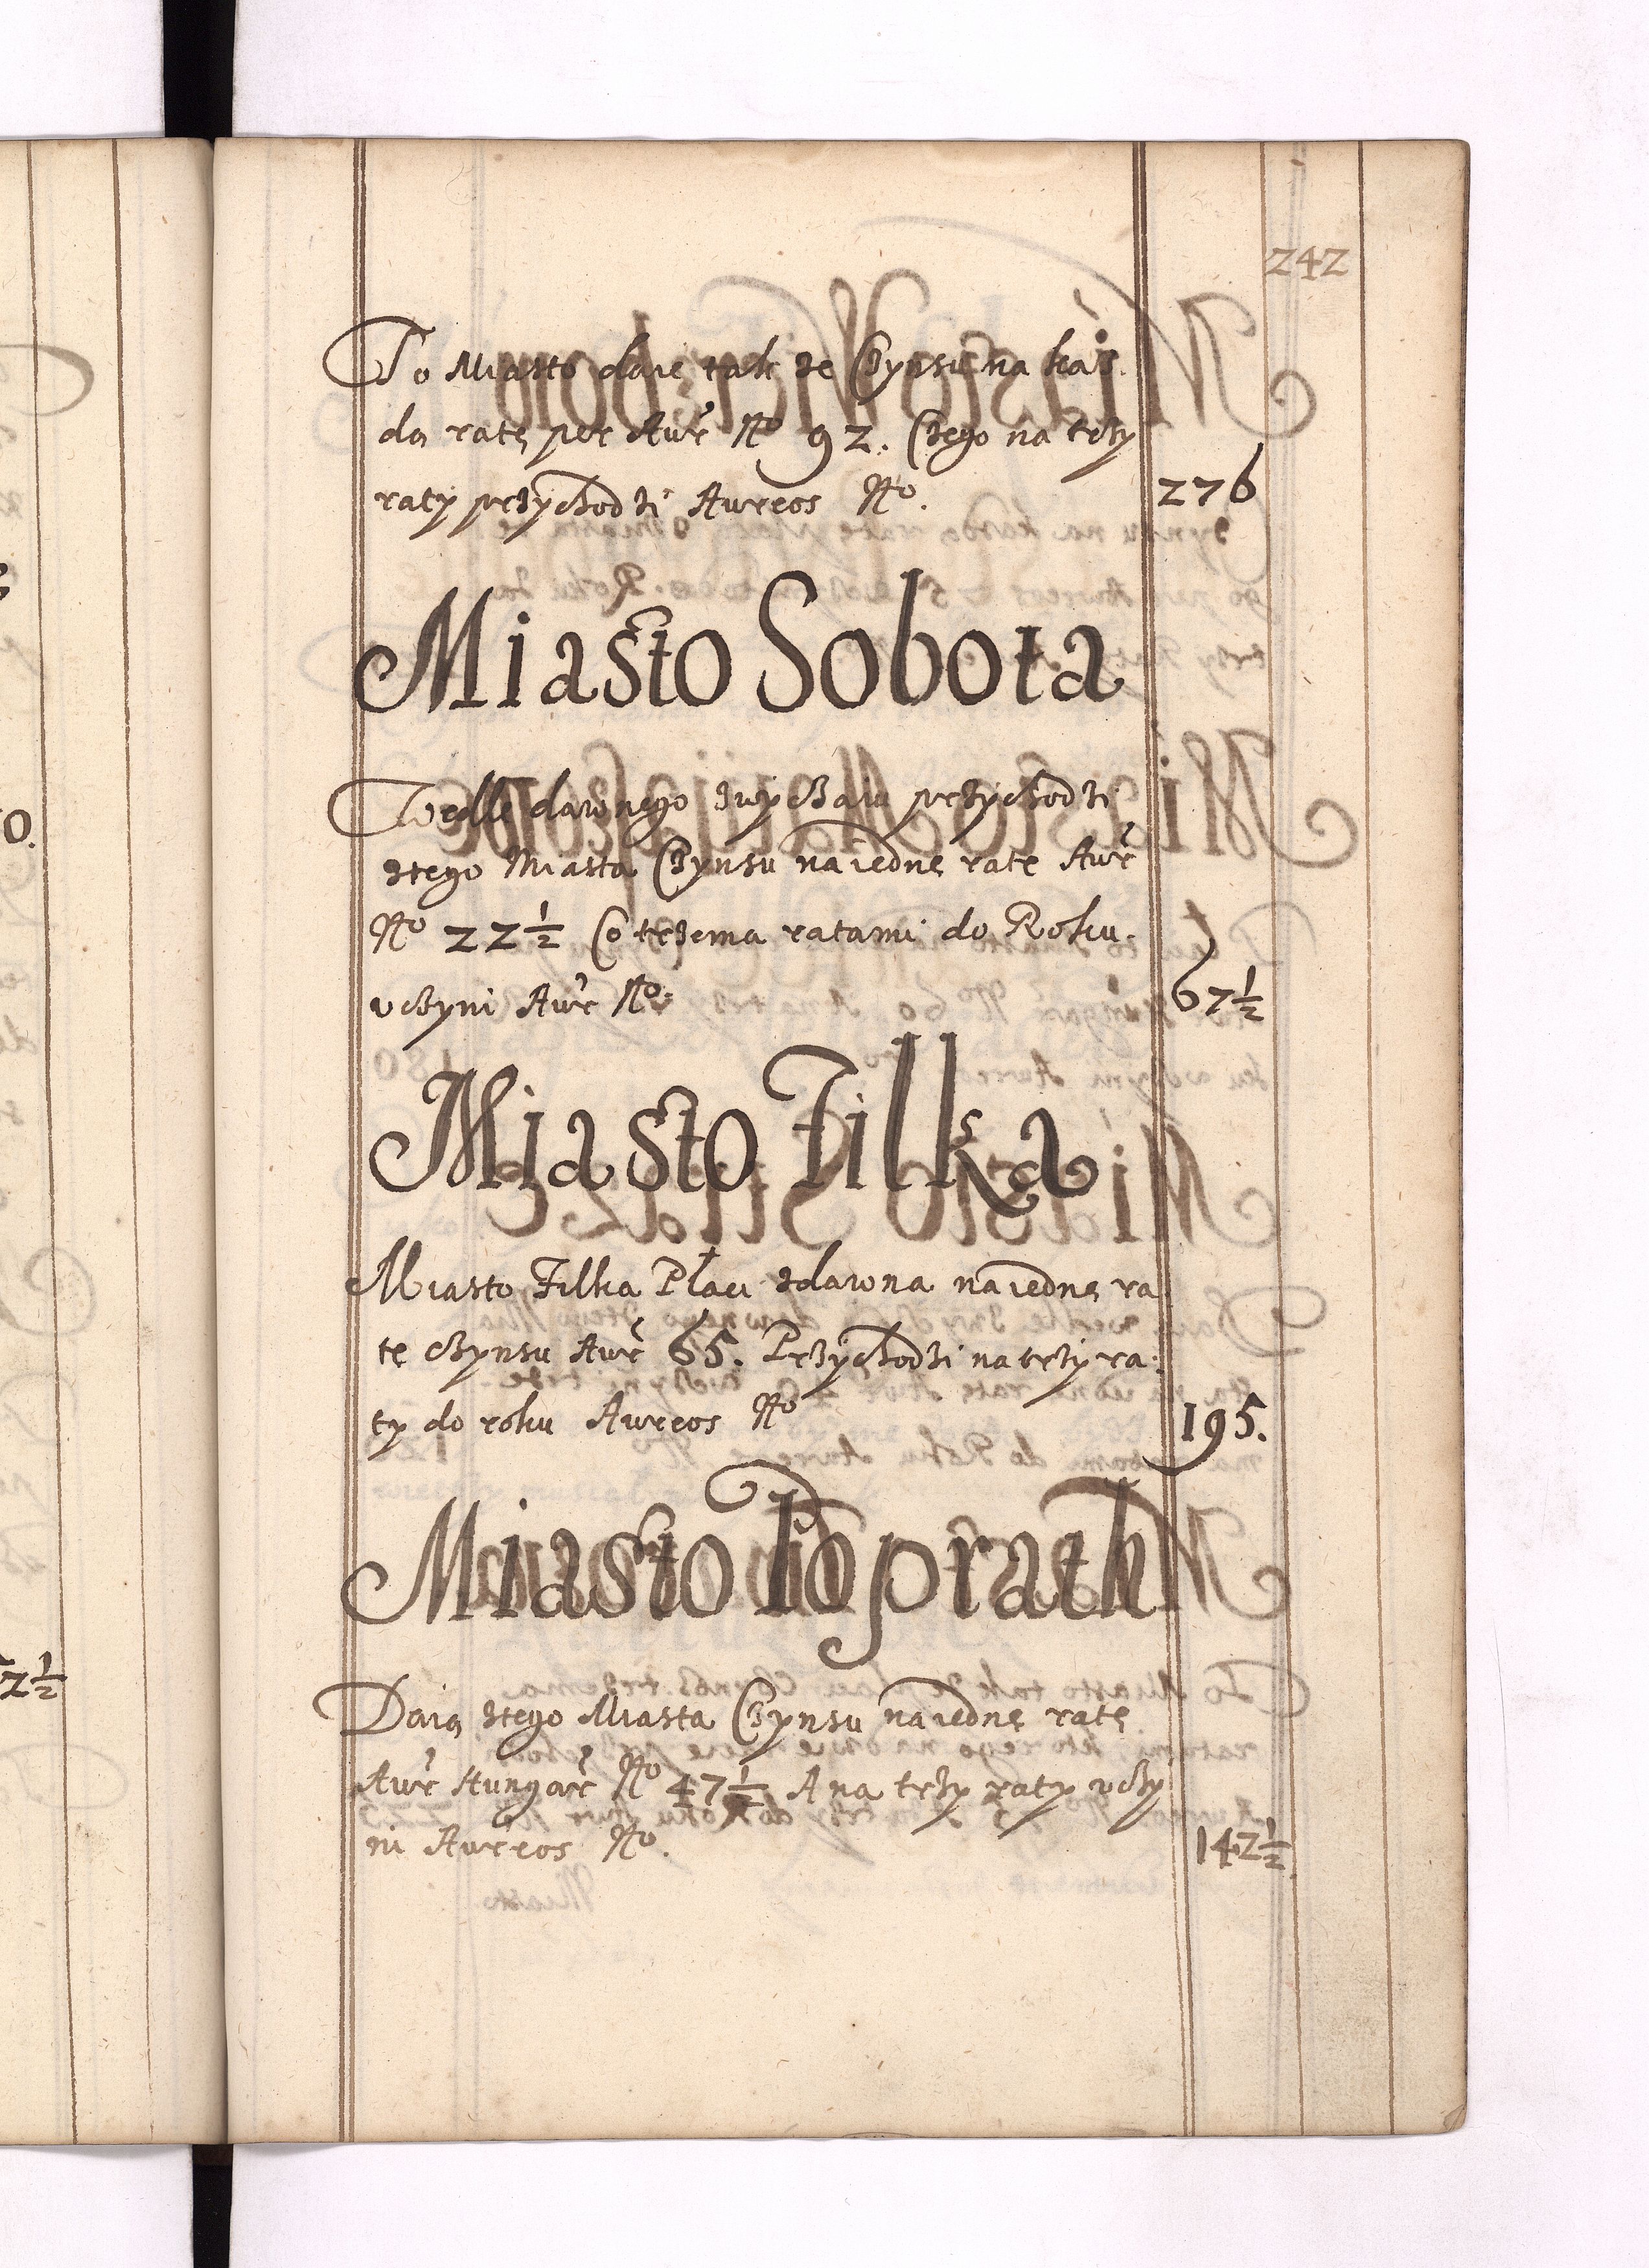 242
To Miasto daie takze Czynsu na kaz
dą ratę per Aur No 92. Czego na trzy
raty przychodzi Aureos No. 276
Miasto Sobota
Wedle dawnego zwyczaiu przychodzi
ztego Miasta Czynsu na iednę ratę Aur
No 22 1/2 Co trzema ratami do Roku.
vczyni Aur No. 67 1/2
Miasto Filka
Miasto Filka Płaci zdawna na iednę ra
tę czynsu Aur 65. Przychodzi na trzy ra:
ty do roku Aureos No 195.
Miasto Poprath
Daią ztego Miasta Czynsu na iednę ratę
Aur Hungar No 47 1/2 A na trzy raty vczy
ni Aureos No. 142 1/2
0.
2 1/2